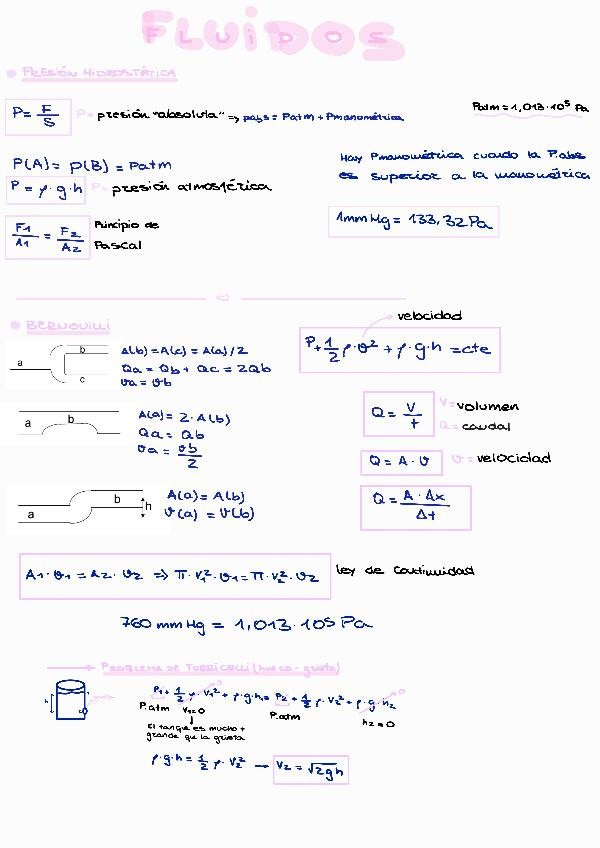 FLUIDOS
PRESIÓN HIDROSTÁTICA
P = F/S P = presión "absoluta" => Pabs = Patm + Pmanométrica
Patm = 1,013·10⁵ Pa
P(A) = P(B) = Patm
Hay Pmanométrica cuando la P.abs
es superior a la manométrica
P = ρ·g·h P = presión atmosférica
F1/A1 = F2/A2 Principio de
Pascal
1mmHg = 133,32Pa
BERNOUILLI
velocidad
P + 1/2 ρ·v² + ρ·g·h = cte
a b c
A(b) = A(c) = A(a)/2
Qa = Qb + Qc = 2Qb
va = vb
a b
A(a) = 2·A(b)
Qa = Qb
va = vb/2
Q = V/t V = volumen
Q = caudal
Q = A·v v = velocidad
a b h
A(a) = A(b)
v(a) = v(b)
Q = A·Δx/Δt
A1·v1 = A2·v2 => π·r1²·v1 = π·r2²·v2 ley de continuidad
760 mmHg = 1,013·10⁵ Pa
PROBLEMA DE TORRICELLI (hueco - grieta)
h
P1 + 1/2 ρ·V1² + ρ·g·h1 = P2 + 1/2 ρ·V2² + ρ·g·h2
0 0
P.atm V1=0 P.atm h2=0
El tanque es mucho +
grande que la grieta
ρ·g·h = 1/2 ρ·V2² → V2 = √2gh